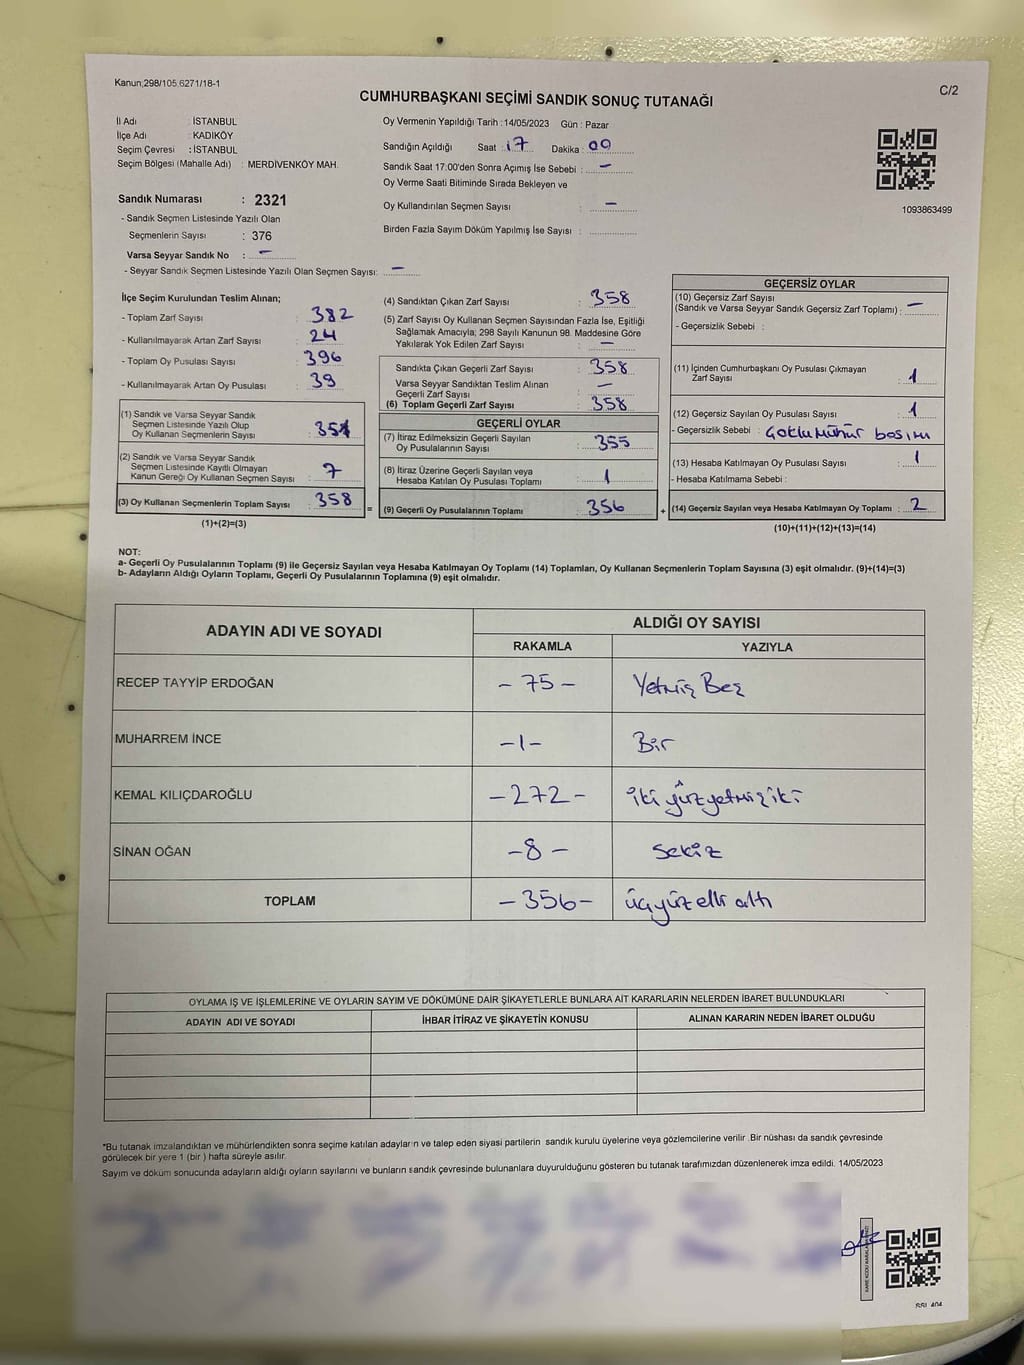 Kanun,298/105,6271/18-1
C/2
CUMHURBAŞKANI SEÇİMİ SANDIK SONUÇ TUTANAĞI
İl Adı : İSTANBUL
İlçe Adı : KADIKÖY
Seçim Çevresi : İSTANBUL
Seçim Bölgesi (Mahalle Adı) : MERDİVENKÖY MAH.
Oy Vermenin Yapıldığı Tarih : 14/05/2023 Gün : Pazar
Sandığın Açıldığı Saat : 17 Dakika : 09
Sandık Saat 17:00'den Sonra Açımış İse Sebebi : –
Oy Verme Saati Bitiminde Sırada Bekleyen ve
Oy Kullandırılan Seçmen Sayısı : –
Birden Fazla Sayım Döküm Yapılmış İse Sayısı :
1093863499
Sandık Numarası : 2321
- Sandık Seçmen Listesinde Yazılı Olan
Seçmenlerin Sayısı : 376
Varsa Seyyar Sandık No : –
- Seyyar Sandık Seçmen Listesinde Yazılı Olan Seçmen Sayısı: –
İlçe Seçim Kurulundan Teslim Alınan;
- Toplam Zarf Sayısı : 382
- Kullanılmayarak Artan Zarf Sayısı : 24
- Toplam Oy Pusulası Sayısı : 396
- Kullanılmayarak Artan Oy Pusulası : 39
(1) Sandık ve Varsa Seyyar Sandık
Seçmen Listesinde Yazılı Olup
Oy Kullanan Seçmenlerin Sayısı : 351
(2) Sandık ve Varsa Seyyar Sandık
Seçmen Listesinde Kayıtlı Olmayan
Kanun Gereği Oy Kullanan Seçmen Sayısı : 7
(3) Oy Kullanan Seçmenlerin Toplam Sayısı : 358
(1)+(2)=(3)
(4) Sandıktan Çıkan Zarf Sayısı : 358
(5) Zarf Sayısı Oy Kullanan Seçmen Sayısından Fazla İse, Eşitliği
Sağlamak Amacıyla; 298 Sayılı Kanunun 98. Maddesine Göre
Yakılarak Yok Edilen Zarf Sayısı : –
Sandıkta Çıkan Geçerli Zarf Sayısı : 358
Varsa Seyyar Sandıktan Teslim Alınan
Geçerli Zarf Sayısı : –
(6) Toplam Geçerli Zarf Sayısı : 358
GEÇERLİ OYLAR
(7) İtiraz Edilmeksizin Geçerli Sayılan
Oy Pusulalarının Sayısı : 355
(8) İtiraz Üzerine Geçerli Sayılan veya
Hesaba Katılan Oy Pusulası Toplamı : 1
= (9) Geçerli Oy Pusulalarının Toplamı : 356
GEÇERSİZ OYLAR
(10) Geçersiz Zarf Sayısı
(Sandık ve Varsa Seyyar Sandık Geçersiz Zarf Toplamı) : –
- Geçersizlik Sebebi :
(11) İçinden Cumhurbaşkanı Oy Pusulası Çıkmayan
Zarf Sayısı : 1
(12) Geçersiz Sayılan Oy Pusulası Sayısı : 1
- Geçersizlik Sebebi : Çoklu mühür basımı
(13) Hesaba Katılmayan Oy Pusulası Sayısı : 1
- Hesaba Katılmama Sebebi :
+ (14) Geçersiz Sayılan veya Hesaba Katılmayan Oy Toplamı : 2
(10)+(11)+(12)+(13)=(14)
NOT:
a- Geçerli Oy Pusulalarının Toplamı (9) ile Geçersiz Sayılan veya Hesaba Katılmayan Oy Toplamı (14) Toplamları, Oy Kullanan Seçmenlerin Toplam Sayısına (3) eşit olmalıdır. (9)+(14)=(3)
b- Adayların Aldığı Oyların Toplamı, Geçerli Oy Pusulalarının Toplamına (9) eşit olmalıdır.
ADAYIN ADI VE SOYADI
ALDIĞI OY SAYISI
RAKAMLA YAZIYLA
RECEP TAYYİP ERDOĞAN – 75 – Yetmiş Beş
MUHARREM İNCE –1– Bir
KEMAL KILIÇDAROĞLU –272– iki yüz yetmiş iki
SİNAN OĞAN –8– sekiz
TOPLAM –356– üçyüz elli altı
OYLAMA İŞ VE İŞLEMLERİNE VE OYLARIN SAYIM VE DÖKÜMÜNE DAİR ŞİKAYETLERLE BUNLARA AİT KARARLARIN NELERDEN İBARET BULUNDUKLARI
ADAYIN ADI VE SOYADI İHBAR İTİRAZ VE ŞİKAYETİN KONUSU ALINAN KARARIN NEDEN İBARET OLDUĞU
*Bu tutanak imzalandıktan ve mühürlendikten sonra seçime katılan adayların ve talep eden siyasi partilerin sandık kurulu üyelerine veya gözlemcilerine verilir. Bir nüshası da sandık çevresinde
görülecek bir yere 1 (bir ) hafta süreyle asılır.
Sayım ve döküm sonucunda adayların aldığı oyların sayılarını ve bunların sandık çevresinde bulunanlara duyurulduğunu gösteren bu tutanak tarafımızdan düzenlenerek imza edildi. 14/05/2023